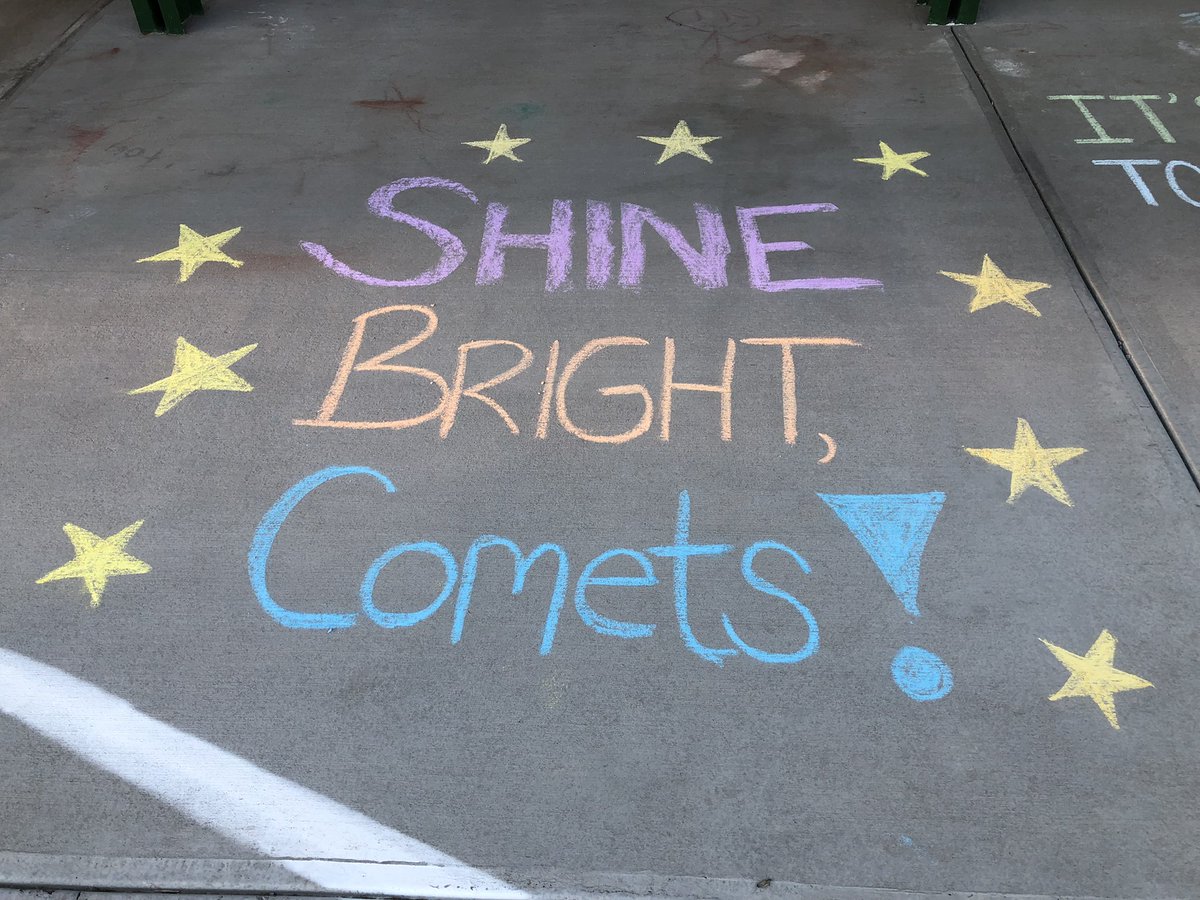 SHINE
BRIGHT,
Comets!
IT'S
TO